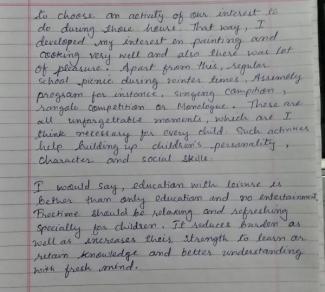 to choose an activity of our interest to
do during those hours. That way, I
developed my interest on painting and
cooking very well and also there was lot
of pleasure. Apart from this, regular
school picnic during winter times. Assembly
program for instance, singing compition,
rangoli competition or Monologue. These are
all unforgettable moments, which are I
think necessary for every child. Such activities
help building up children's personality,
character and social skills.
I would say, education with leisure is
better than only education and no entertainment
Freetime should be relaxing and refreshing
specially for children. It reduces burden as
well as increases their strength to learn or
retain knowledge and better understanding
with fresh mind.